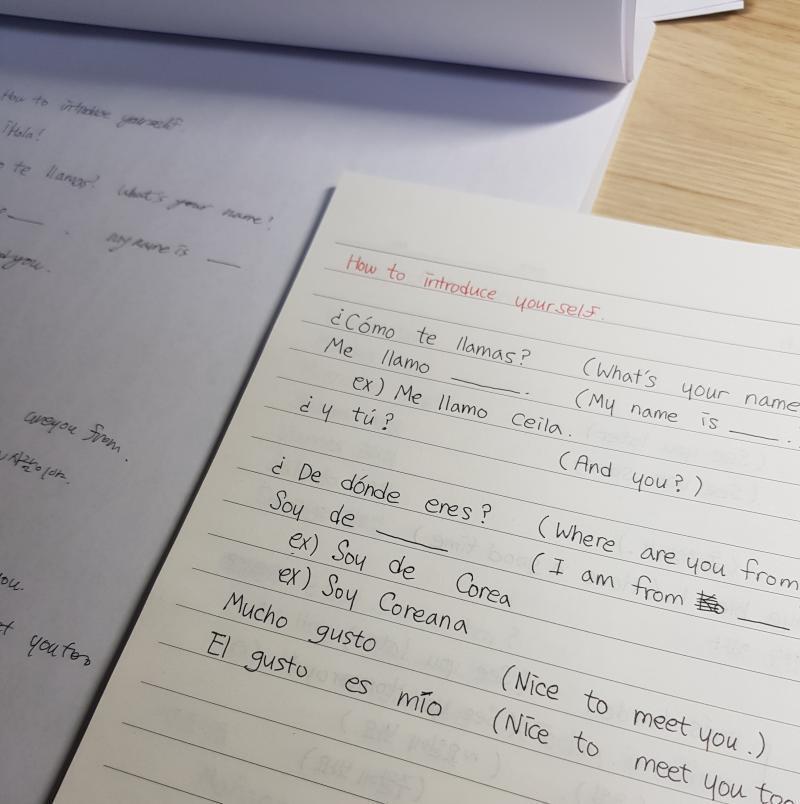 How to introduce yourself
¡Hola!
te llamas? What's your name?
my name is ___
you.
are you from.
you.
you too
How to introduce yourself.
¿Cómo te llamas? (What's your name
Me llamo ___. (My name is ___.
ex) Me llamo Ceila.
¿y tú? (And you?)
¿De dónde eres? (Where are you from
Soy de ___ (I am from ___
ex) Soy de Corea
ex) Soy Coreana
Mucho gusto (Nice to meet you.)
El gusto es mío (Nice to meet you too